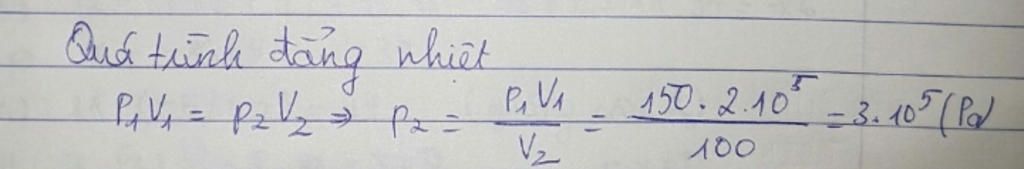 Quá trình đẳng nhiệt
P₁V₁ = P₂V₂ ⇒ P₂ = P₁V₁ / V₂ = 150 . 2 . 10⁵ / 100 = 3 . 10⁵ (Pa)